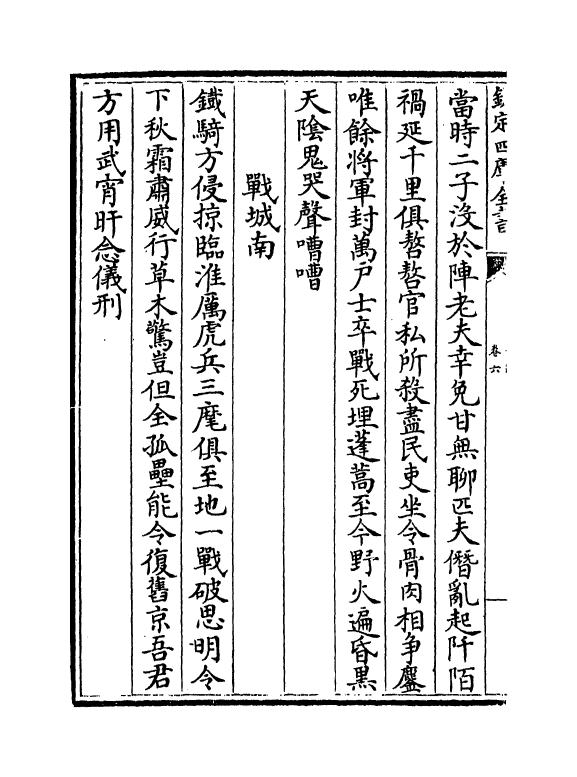 欽定四庫全書
卷六
當時二子没於陣老夫幸免甘無聊匹夫僭亂起阡陌
禍延千里俱嗸嗸官私所殺盡民吏坐令骨肉相争鏖
唯餘將軍封萬户士卒戰死埋蓬蒿至今野火遍昏黒
天陰鬼哭聲嘈嘈
戰城南
鐵騎方侵掠臨淮厲虎兵三麾俱至地一戰破思明令
下秋霜肅威行草木驚豈但全孤壘能令復舊京吾君
方用武宵旰念儀刑